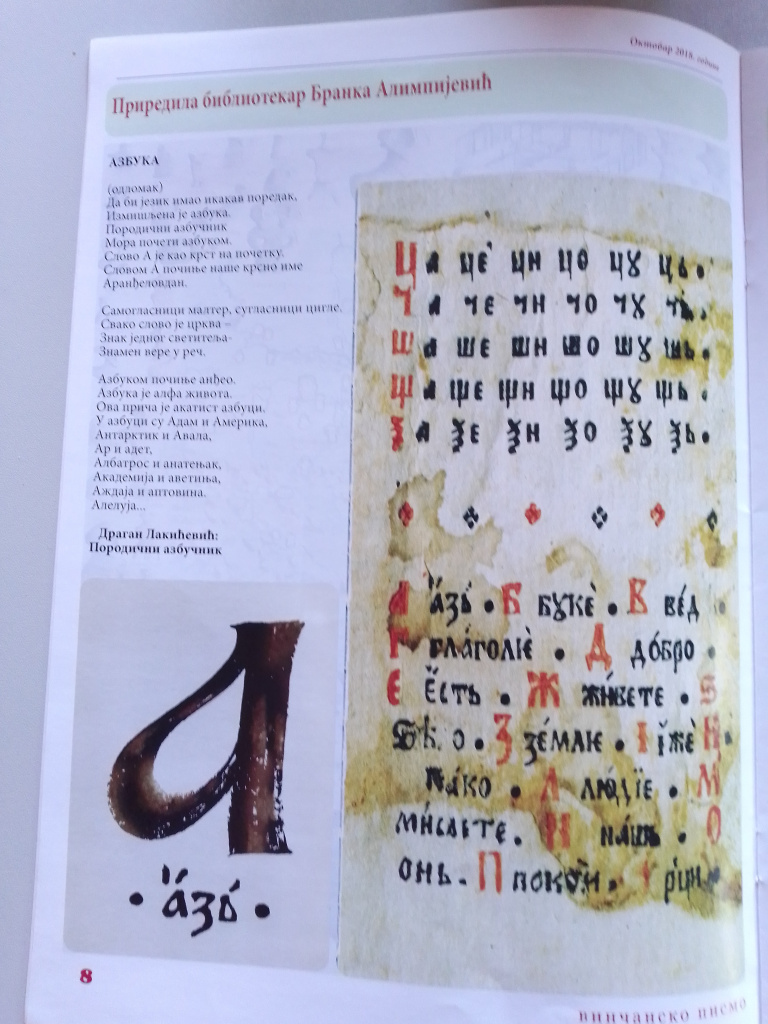 Октобар 2018. година
Приредила библиотекар Бранка Алимпијевић
АЗБУКА
(одломак)
Да би језик имао икакав поредак,
Измишљена је азбука.
Породични азбучник
Мора почети азбуком.
Слово А је као крст на почетку.
Словом А почиње наше крсно име
Аранђеловдан.
Самогласници малтер, сугласници цигле.
Свако слово је црква –
Знак једног светитеља-
Знамен вере у реч.
Азбуком почиње анђео.
Азбука је алфа живота.
Ова прича је акатист азбуци.
У азбуци су Адам и Америка,
Антарктик и Авала,
Ар и адет,
Албатрос и анатењак,
Академија и аветиња,
Аждаја и аптовина.
Алелуја...
Драган Лакићевић:
Породични азбучник
А
· а́зъ ·
Ца це ци цо цꙋ ць.
Ча че чи чо чꙋ чь.
Ша ше ши шо шꙋ шь.
Ща ще щи що щꙋ щь.
Ѯа ѯе ѯи ѯо ѯꙋ ѯь.
А а́зъ · Б бꙋкѐ · В ве́д
Г глаголѥ · Д до́бро ·
Е Есть · Ж живѣте · Ѕ
Ѕѣло · З зе́млѥ · І і́же И
ꙗко · Л лю́дїе · М
мислѣте. Н нашь · О
онь. П поко́и. Р рци
8
винчанско писмо